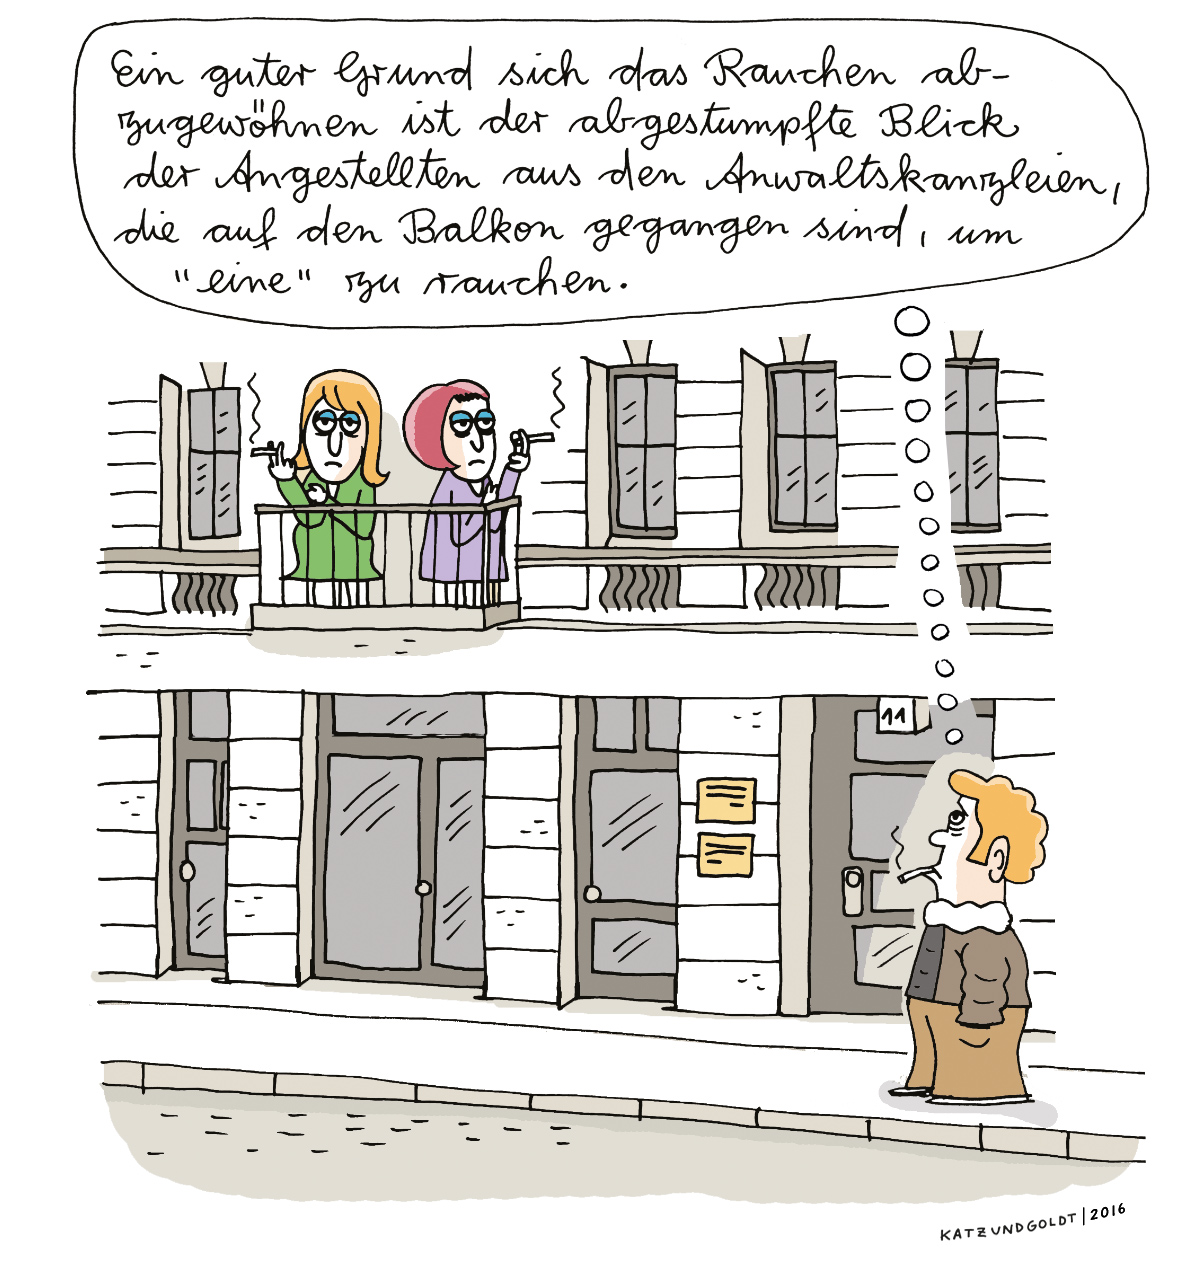 Ein guter Grund sich das Rauchen ab-
zugewöhnen ist der abgestumpfte Blick
der Angestellten aus den Anwaltskanzleien,
die auf den Balkon gegangen sind, um
"eine" zu rauchen.
11
KATZUNDGOLDT|2016